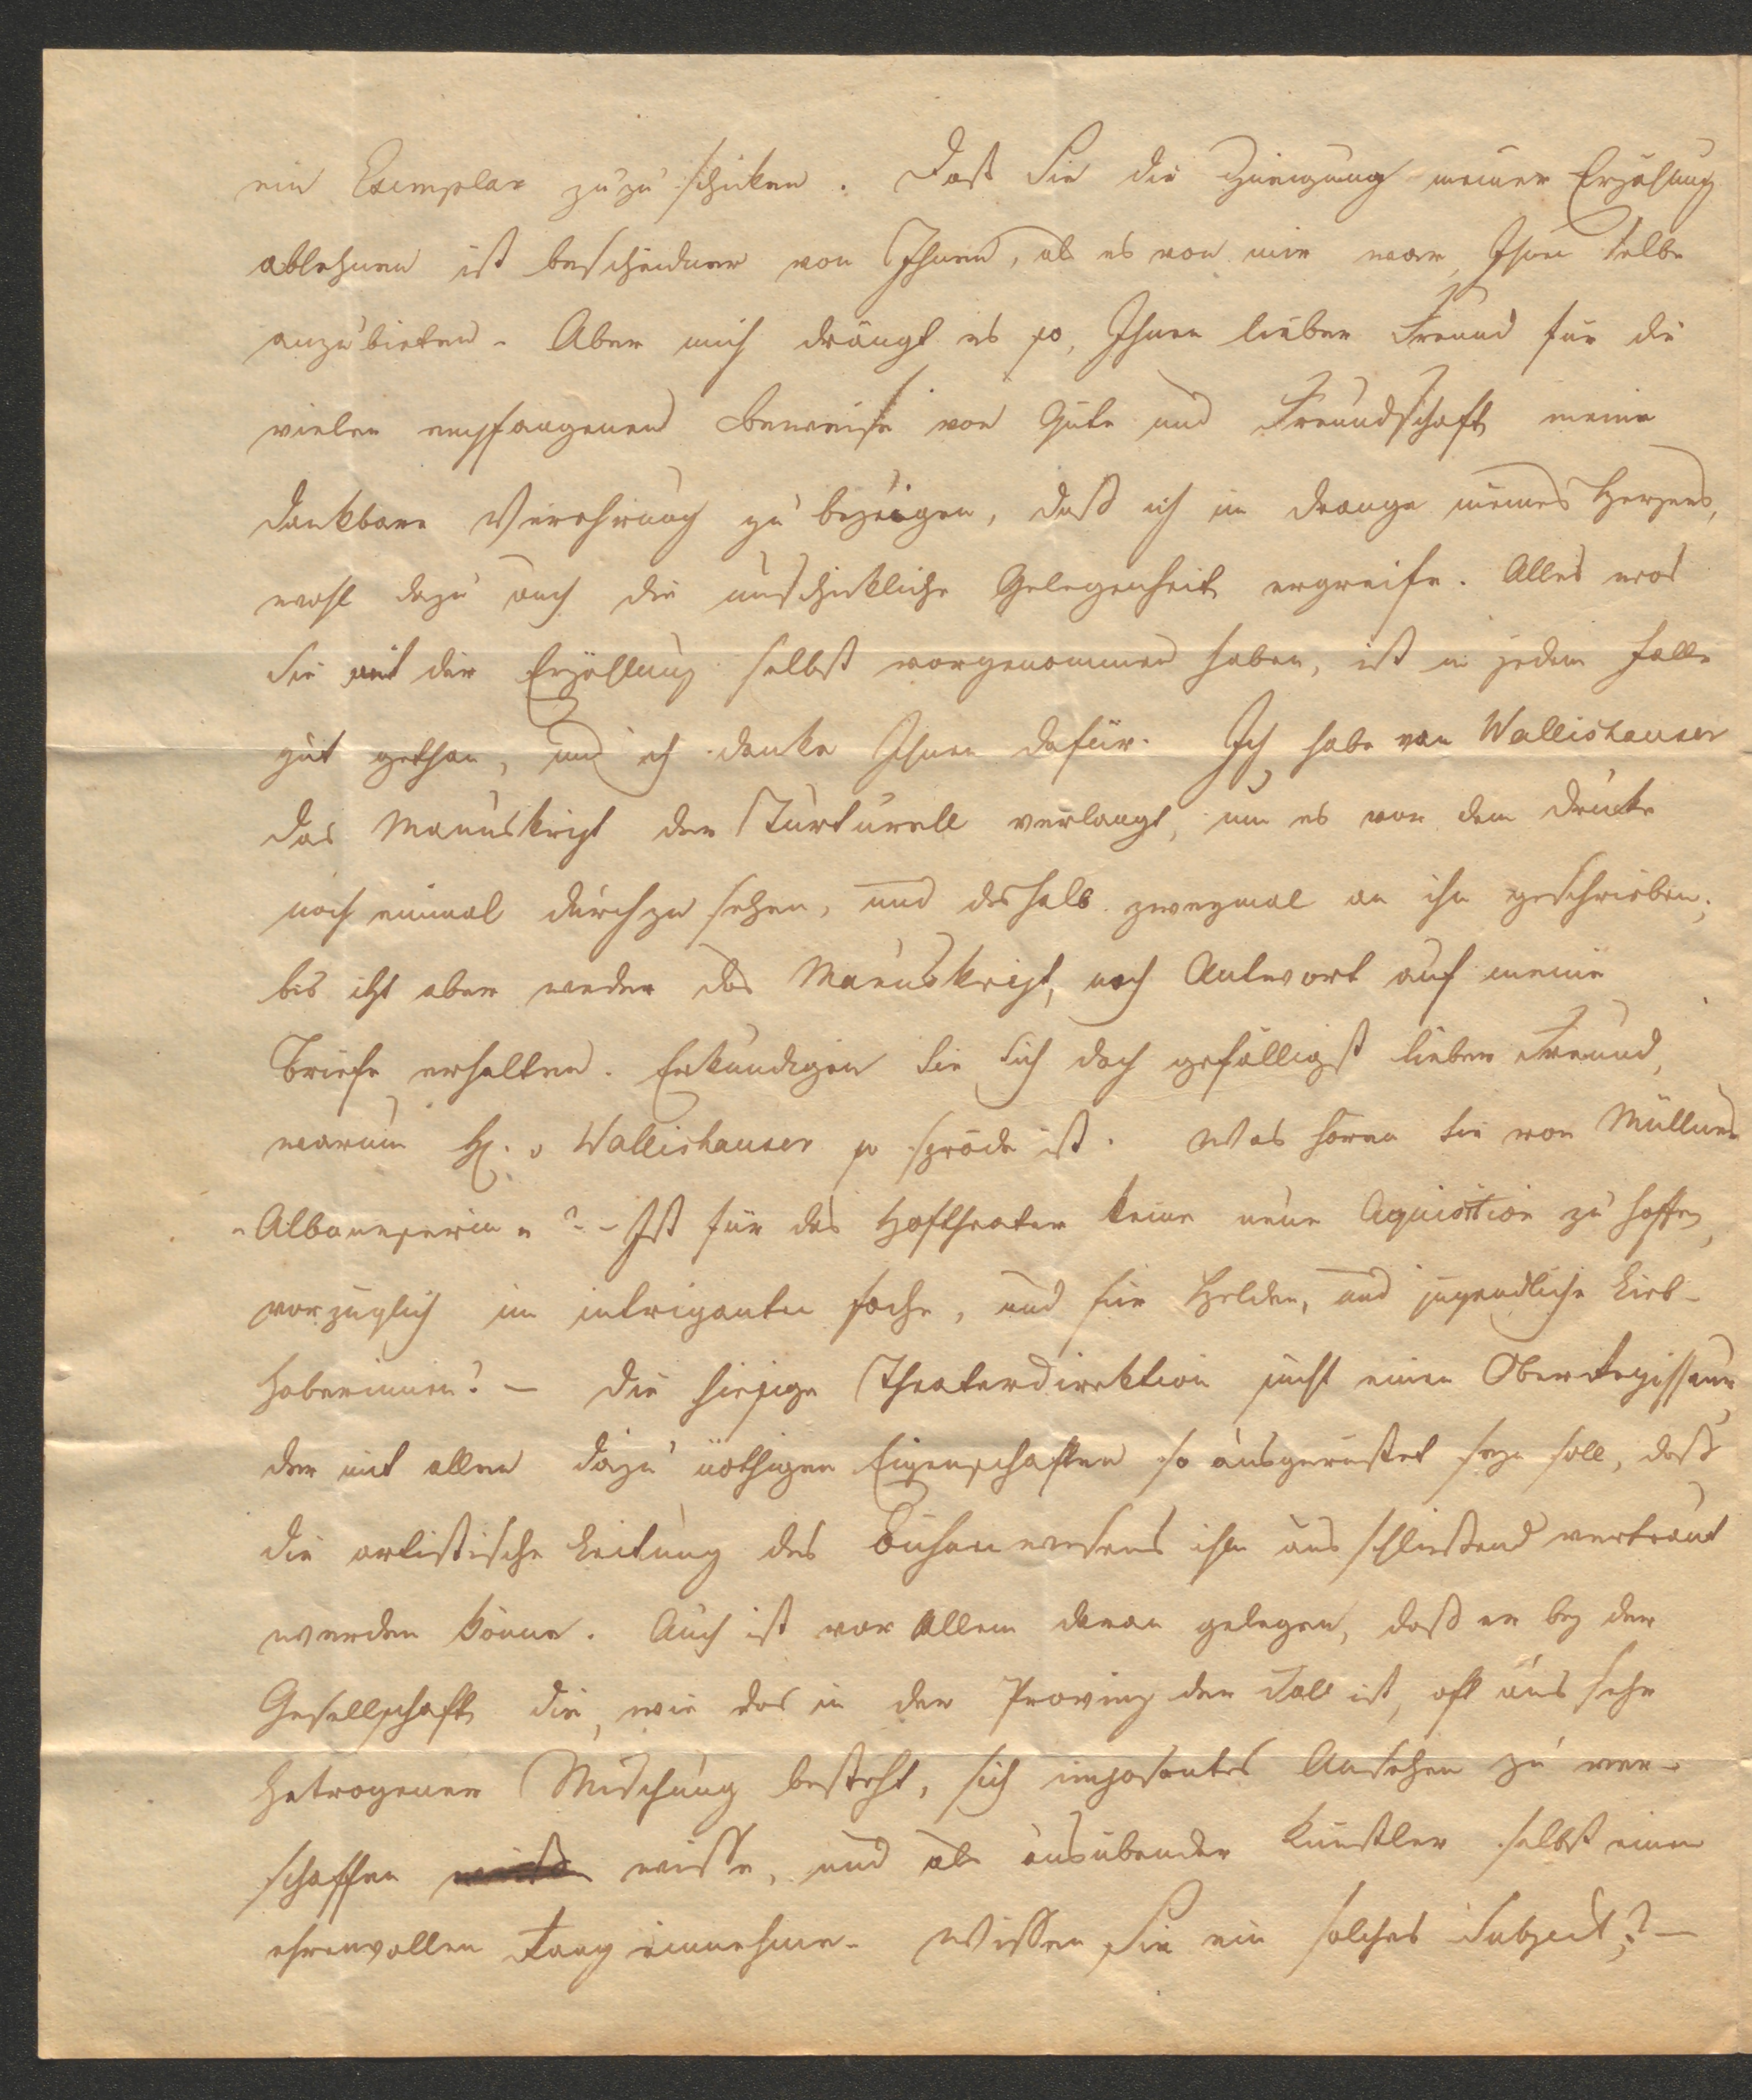 ein Exemplar zuzuschicken. Daß Sie die Zueignung meiner Erzälung
ablehnen ist bescheidner von Ihnen, als es von mir war, Ihnen selbe
anzubieten. Aber mich drängt es so, Ihnen lieber Freund für die
vielen empfangenen Beweise von Güte und Freundschaft meine
dankbare Verehrung zu bezeigen, daß ich im Drange meines Herzens,
wohl dazu auch die unschickliche Gelegenheit ergreife. Alles was
Sie mit der Erzählung selbst vorgenommen haben, ist in jedem Falle
gut gethan, und ich danke Ihnen dafür. Ich habe von Wallishauser
das Manuskript der Turturell verlangt, um es vor dem Drucke
noch einmal durchzusehen, und deshalb zweymal an ihn geschrieben;
bis itzt aber weder das Manuskript, noch Antwort auf meine
Briefe erhalten. Erkundigen Sie Sich doch gefälligst lieber Freund,
warum H. v Wallishauser so spröde ist. Was hören Sie von Müllners
"Albaneserin"? - Ist für das Hoftheater keine neue Aquisition zu hoffen,
vorzüglich im intriganten Fache, und für Helden, und jugendliche Lieb-
haberinnen? — Die hiesige Theaterdirektion sucht einen Oberregisseur,
der mit allen dazu nöthigen Eigenschaften so ausgerüstet seyn soll, daß
die artistische Leitung des Bühnenwesens ihm ausschließend vertraut
werden könne. Auch ist vor Allem daran gelegen, daß er bey der
Gesellschaft die, wie das in der Provinz der Fall ist, oft aus sehr
hetrogener Mischung besteht, sich imposantes Ansehen zu ver-
schaffen wisse, und als ausübender Künstler selbst einen
ehrenvollen Rang einnehme. Wissen Sie ein solches Subject? —